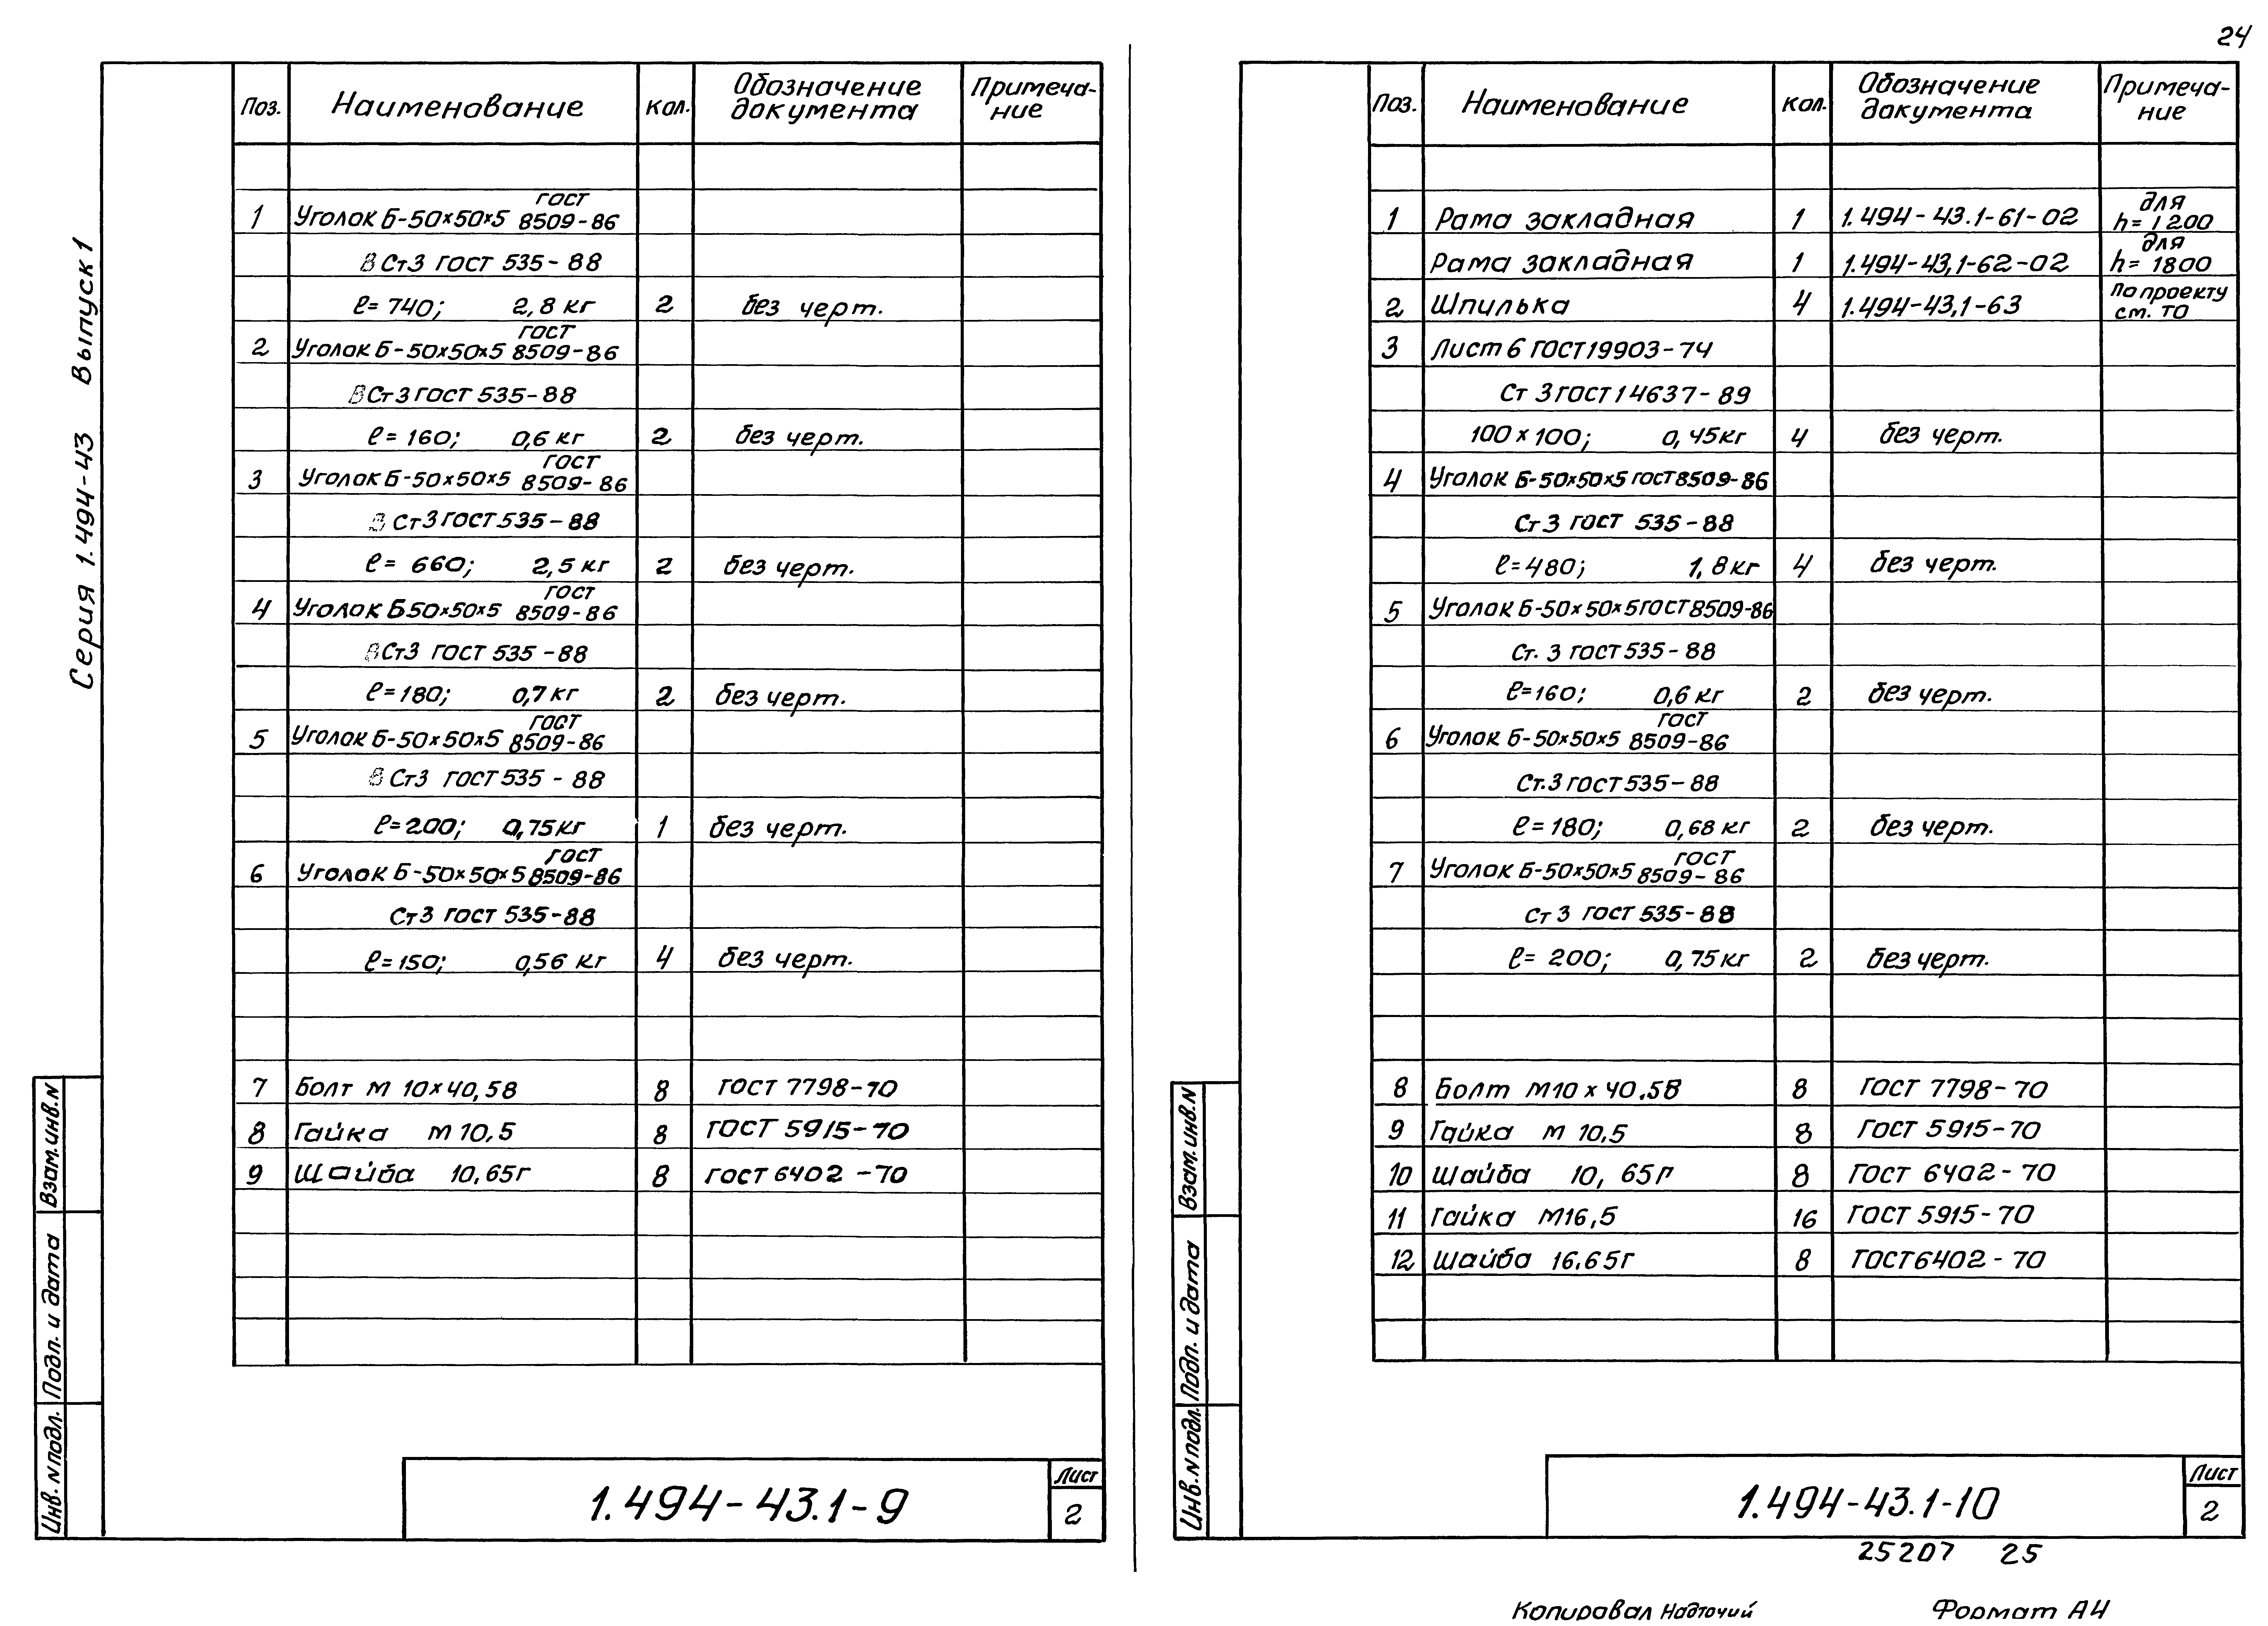 24
Серия 1.494-43 Выпуск 1
Поз. Наименование Кол. Обозначение документа Примечание
1 Уголок Б-50×50×5 ГОСТ 8509-86
ВСт3 ГОСТ 535-88
ℓ=740; 2,8 кг 2 без черт.
2 Уголок Б-50×50×5 ГОСТ 8509-86
ВСт3 ГОСТ 535-88
ℓ=160; 0,6 кг 2 без черт.
3 Уголок Б-50×50×5 ГОСТ 8509-86
ВСт3 ГОСТ 535-88
ℓ= 660; 2,5 кг 2 без черт.
4 Уголок Б50×50×5 ГОСТ 8509-86
ВСт3 ГОСТ 535-88
ℓ=180; 0,7 кг 2 без черт.
5 Уголок Б-50×50×5 ГОСТ 8509-86
ВСт3 ГОСТ 535-88
ℓ=200; 0,75 кг 1 без черт.
6 Уголок Б-50×50×5 ГОСТ 8509-86
Ст3 ГОСТ 535-88
ℓ=150; 0,56 кг 4 без черт.
7 Болт М 10×40,58 8 ГОСТ 7798-70
8 Гайка М 10,5 8 ГОСТ 5915-70
9 Шайба 10,65г 8 ГОСТ 6402-70
Инв. N подл. Подп. и дата Взам. инв. N
1.494-43.1-9
Лист
2
Поз. Наименование Кол. Обозначение документа Примечание
1 Рама закладная 1 1.494-43.1-61-02 для h=1200
Рама закладная 1 1.494-43,1-62-02 для h= 1800
2 Шпилька 4 1.494-43,1-63 По проекту см. ТО
3 Лист 6 ГОСТ 19903-74
Ст 3 ГОСТ 14637-89
100×100; 0,45кг 4 без черт.
4 Уголок Б-50×50×5 ГОСТ 8509-86
Ст3 ГОСТ 535-88
ℓ=480; 1,8 кг 4 без черт.
5 Уголок Б-50×50×5 ГОСТ 8509-86
Ст. 3 ГОСТ 535-88
ℓ=160; 0,6 кг 2 без черт.
6 Уголок Б-50×50×5 ГОСТ 8509-86
Ст.3 ГОСТ 535-88
ℓ=180; 0,68 кг 2 без черт.
7 Уголок Б-50×50×5 ГОСТ 8509-86
Ст 3 ГОСТ 535-88
ℓ= 200; 0,75 кг 2 без черт.
8 Болт М10×40.58 8 ГОСТ 7798-70
9 Гайка М 10,5 8 ГОСТ 5915-70
10 Шайба 10, 65Г 8 ГОСТ 6402-70
11 Гайка М16,5 16 ГОСТ 5915-70
12 Шайба 16.65Г 8 ГОСТ 6402-70
Инв. N подл. Подп. и дата Взам. инв. N
1.494-43.1-10
Лист
2
25207 25
Копировал Надточий Формат А4